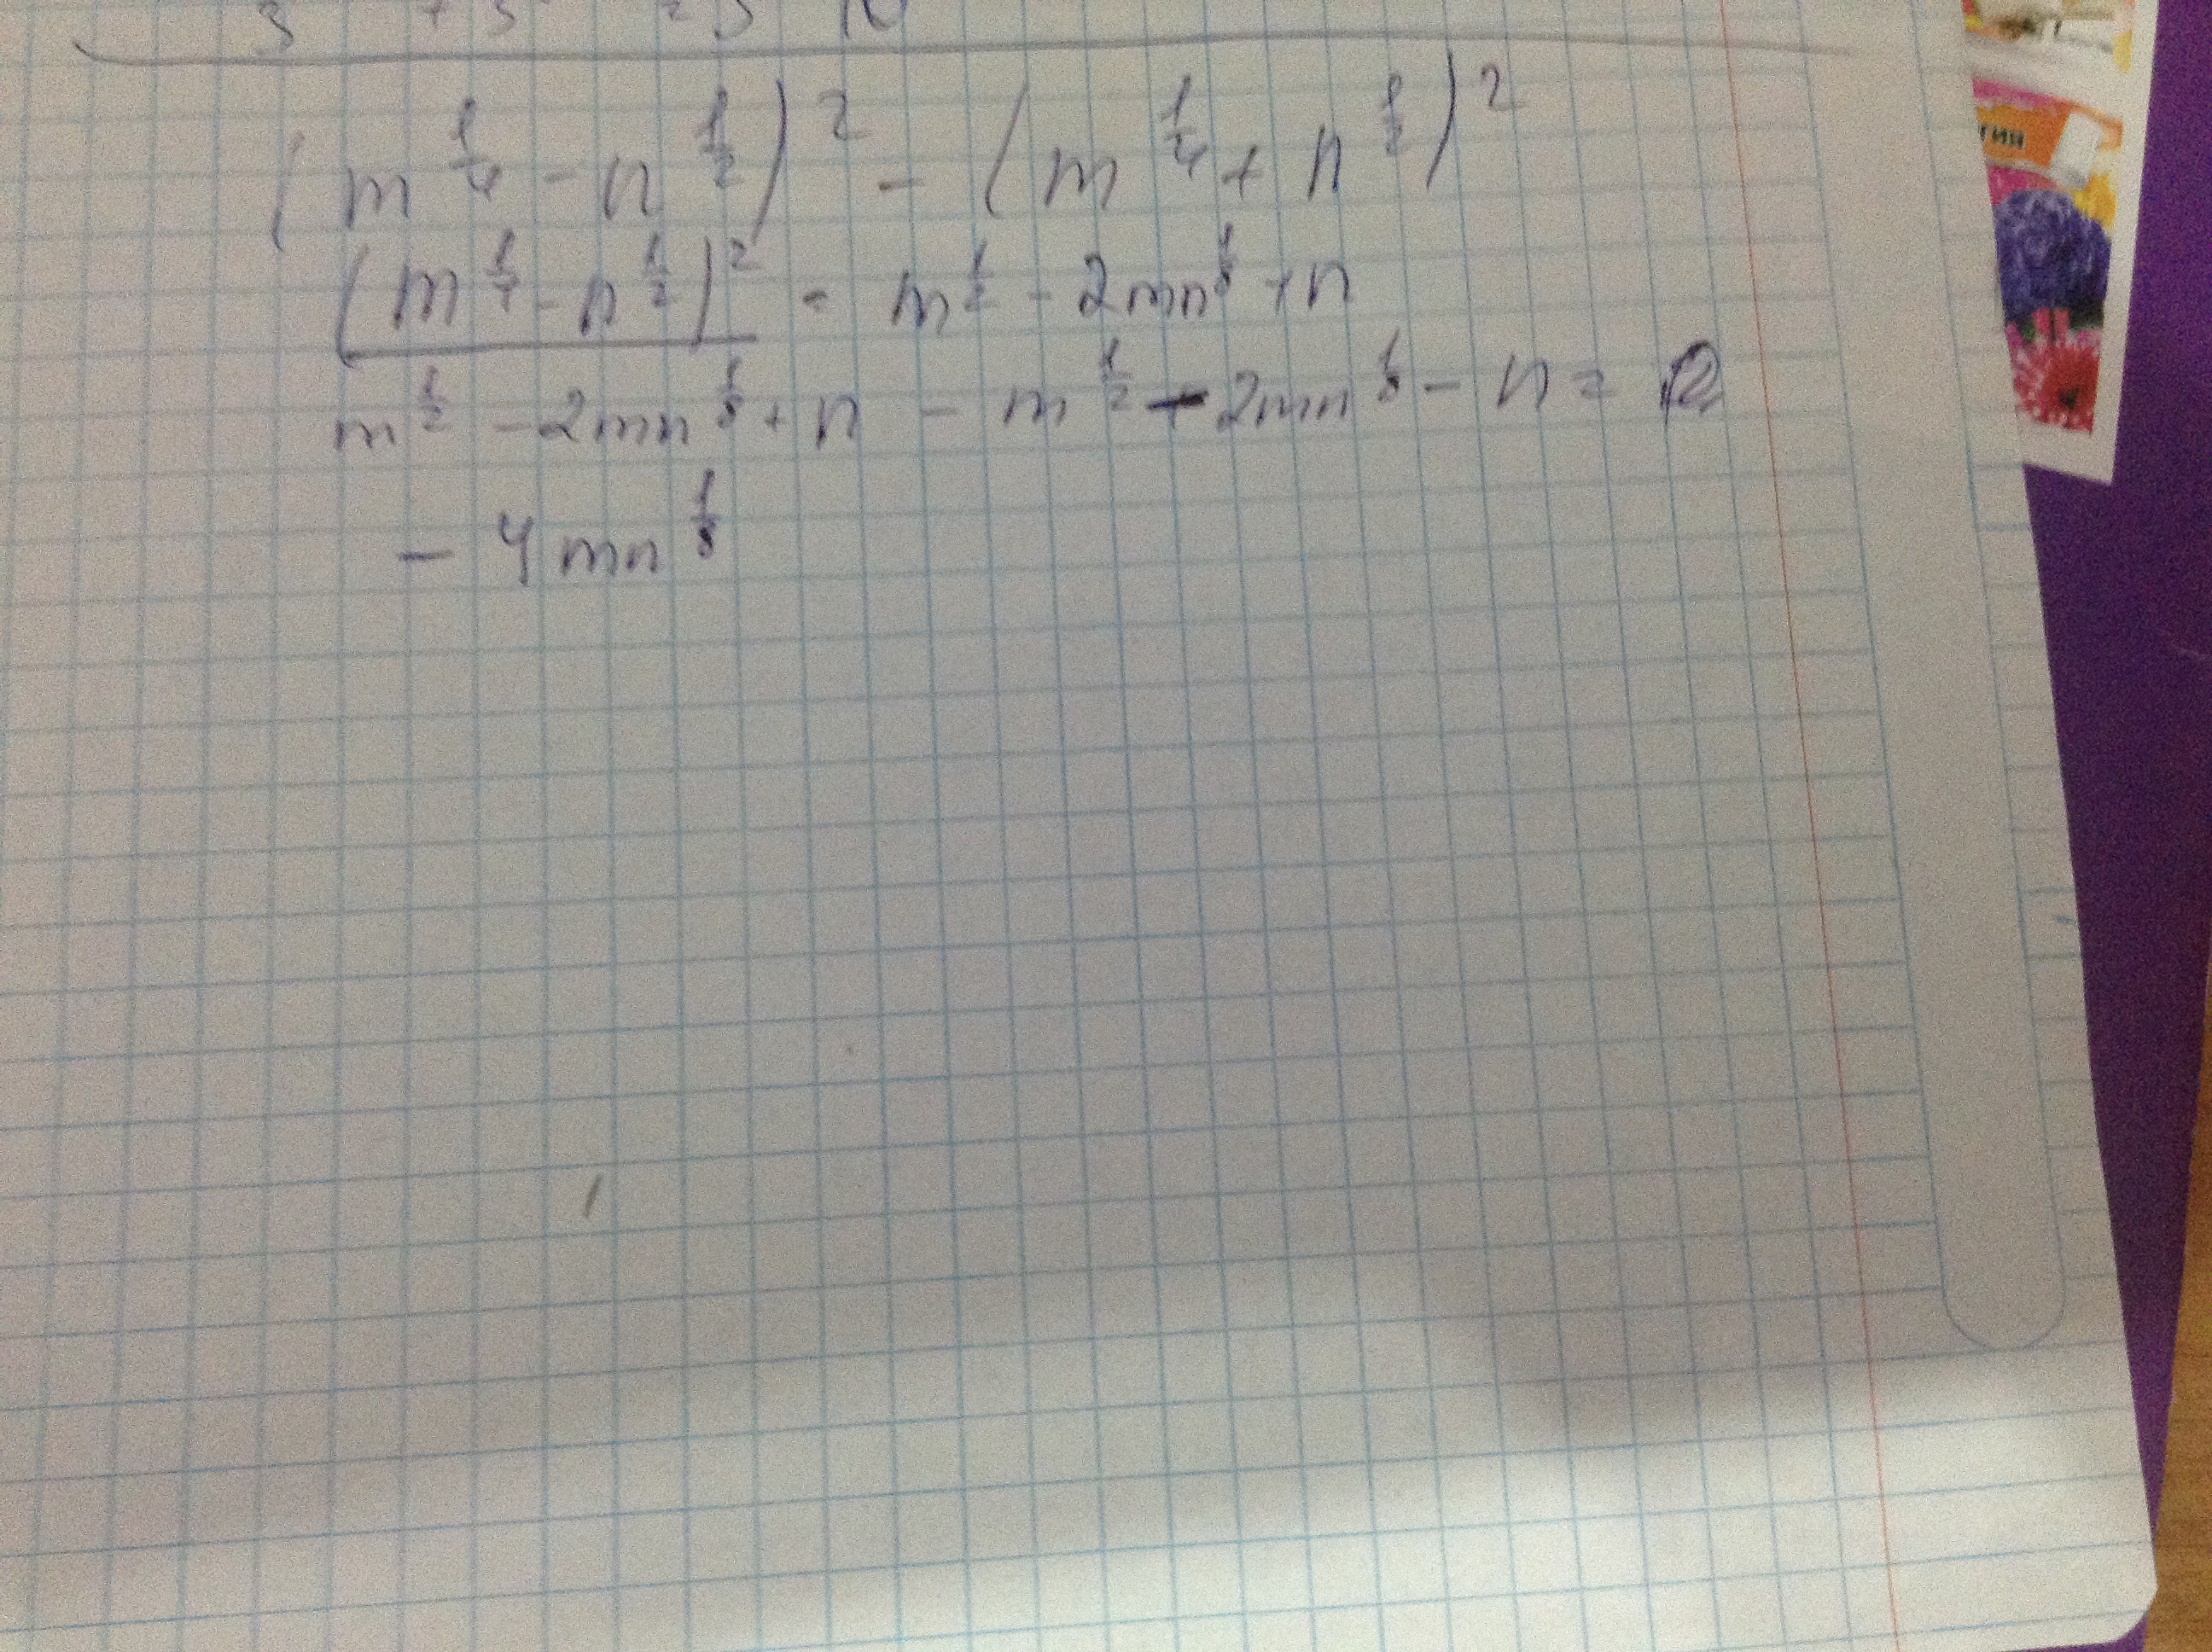 (m^{1/4} - n^{1/2})^2 - (m^{1/4} + n^{1/2})^2
(m^{1/4} - n^{1/2})^2 = m^{1/2} - 2mn^{1/8} + n
m^{1/2} - 2mn^{1/8} + n - m^{1/2} - 2mn^{1/8} - n =
- 4mn^{1/8}
гия